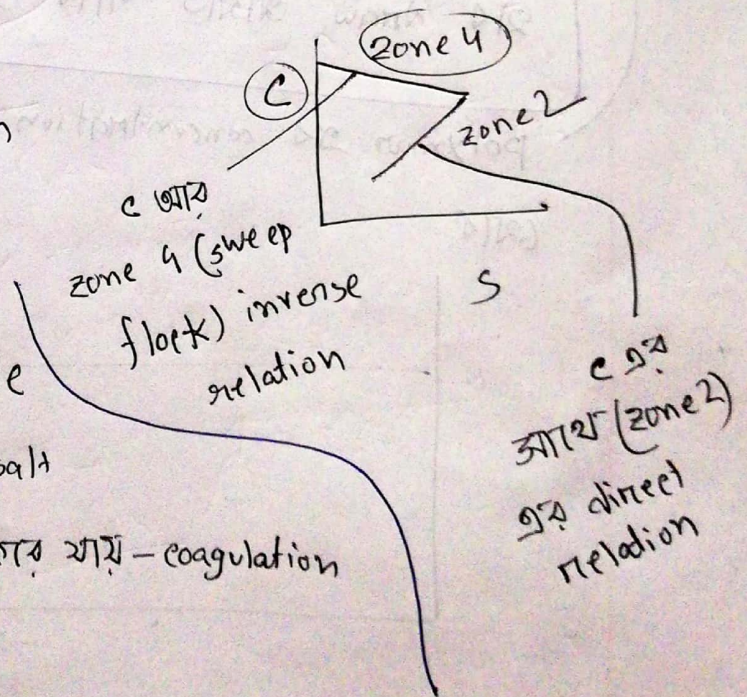 zone 4
C
zone 2
c আর
zone 4 (sweep
flock) inverse
relation
S
c এর
সাথে (zone 2)
এর direct
relation
e
যায় – coagulation